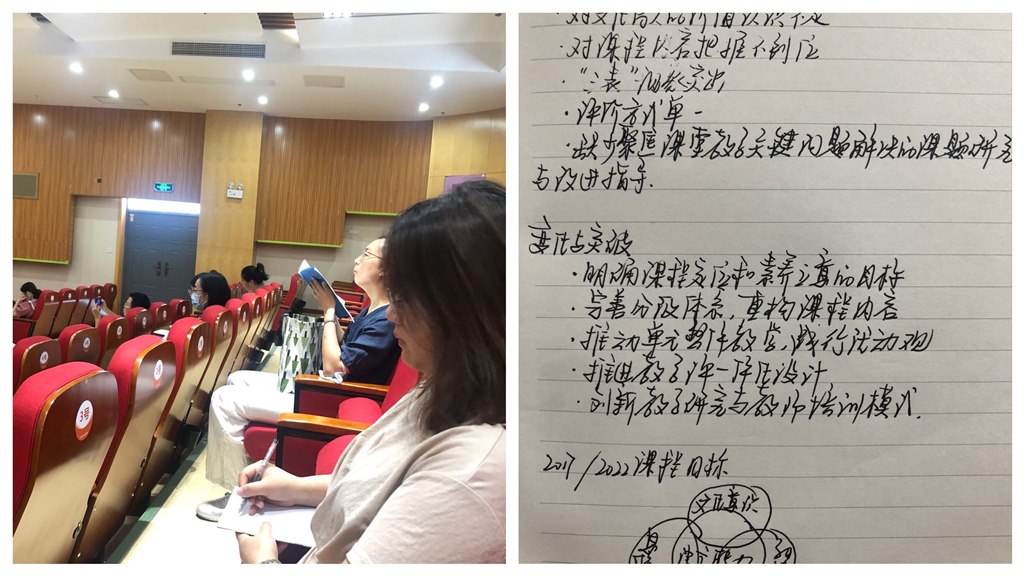 ·对文化育人的价值认识不足
·对课程内容把握不到位
·"三表"问题突出
·评价方式单一
·缺少聚焦课堂教学关键问题解决的课题研究
与改进指导.
变化与突破
·明确课程定位和素养立意的目标
·完善分段体系,重构课程内容
·推动单元整体教学,践行活动观
·推进教学评一体化设计
·创新教学研究与教师培训模式.
2017/2022课程目标
文化意识
语言能力